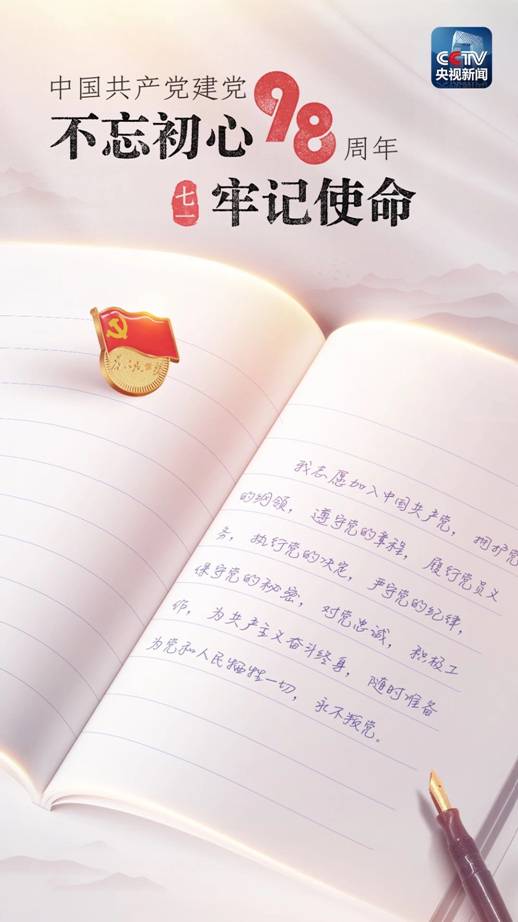 CCTV
央视新闻
中国共产党建党98周年
不忘初心
七一
牢记使命
为人民服务
我志愿加入中国共产党，拥护党
的纲领，遵守党的章程，履行党员义
务，执行党的决定，严守党的纪律，
保守党的秘密，对党忠诚，积极工
作，为共产主义奋斗终身，随时准备
为党和人民牺牲一切，永不叛党。